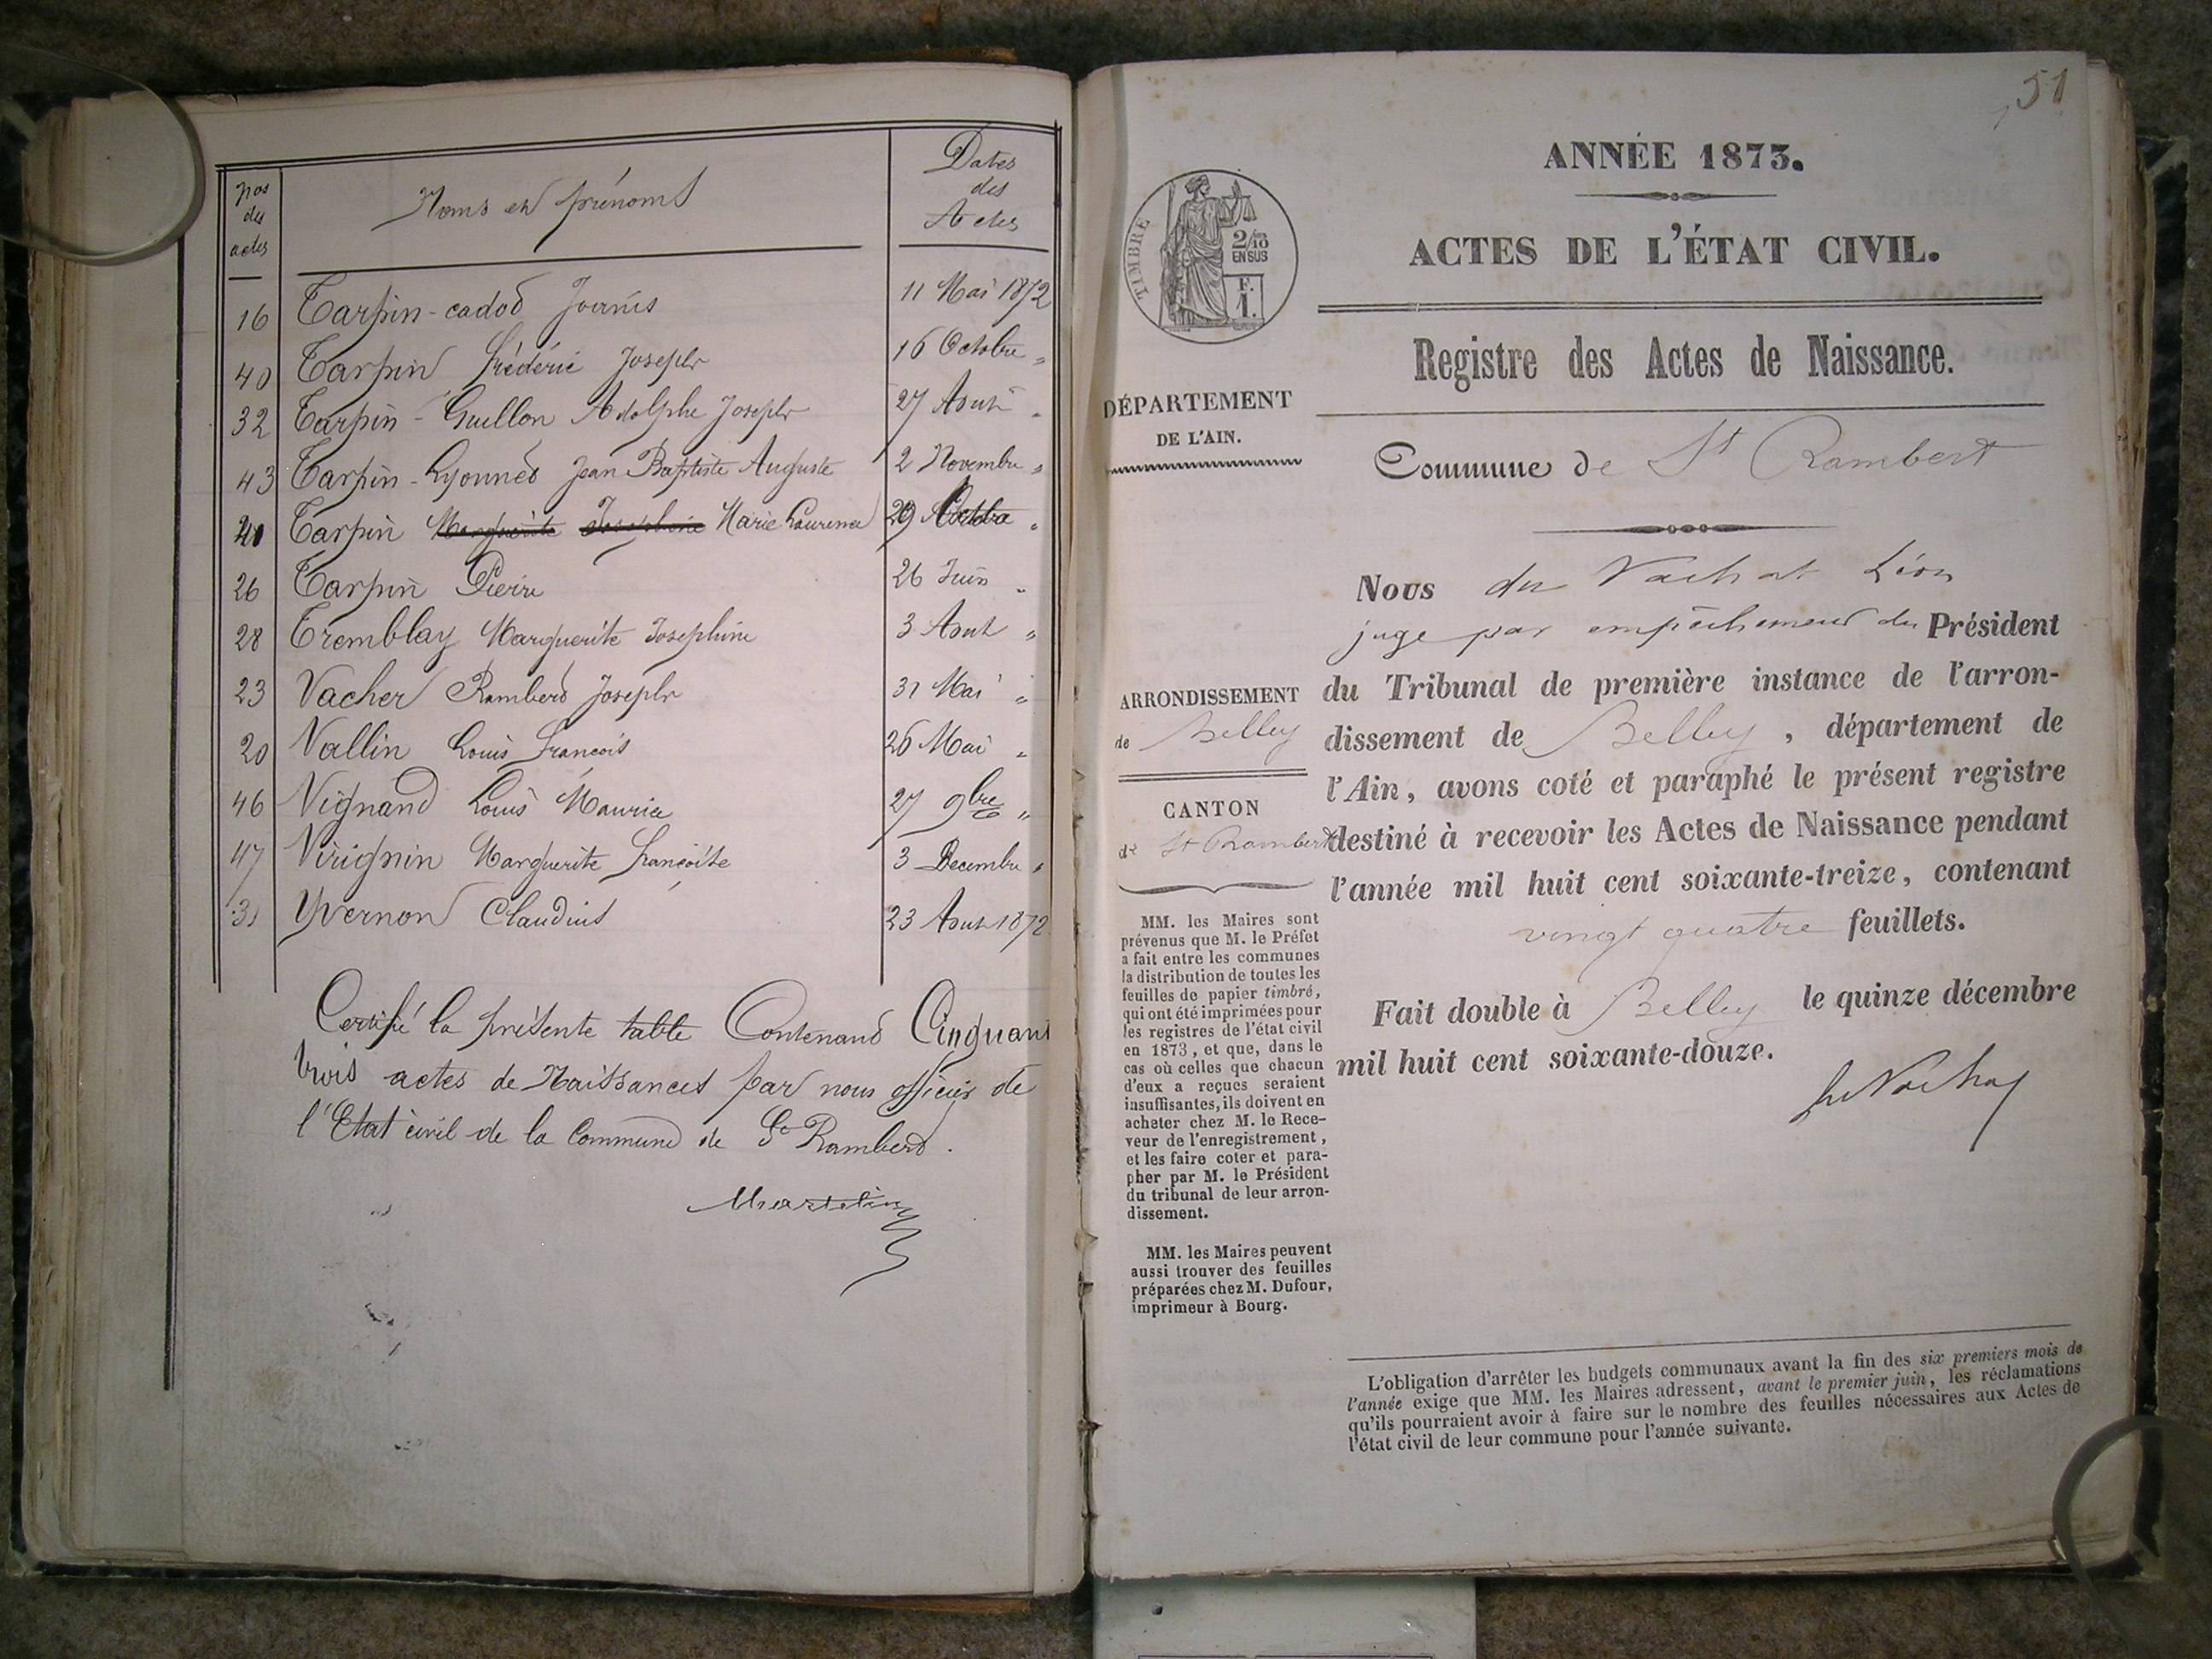 Nos des actes
Noms et prénoms
Dates des Actes
16 Tarpin-cadot Joanis 11 Mai 1872
40 Tarpin Frédéric Joseph 16 Octobre "
32 Tarpin-Guillon Adolphe Joseph 27 Aout "
43 Tarpin-Lyonnet Jean Baptiste Auguste 2 Novembre "
Tarpin Marguerite Josephine Marie Laurence 29 Octobre "
26 Tarpin Pierre 26 Juin "
28 Tremblay Marguerite Josephine 3 Aout "
23 Vacher Rambert Joseph 31 Mai "
20 Vallin Louis François 26 Mai "
46 Vignand Louis Maurice 27 9bre "
47 Virignin Marguerite Françoise 3 Decembre "
31 Yvernon Claudius 23 Aout 1872
Certifié la présente table Contenant Cinquant
trois actes de Naissances par nous officier de
l'Etat civil de la Commune de St Rambert.
51
ANNÉE 1873.
ACTES DE L'ÉTAT CIVIL.
TIMBRE
2/10
EN SUS
F.
1.
Registre des Actes de Naissance.
DÉPARTEMENT
DE L'AIN.
Commune de St Rambert
Nous du Vachat Léon
juge par empêchement du Président
du Tribunal de première instance de l'arron-
dissement de Belley, département de
l'Ain, avons coté et paraphé le présent registre
destiné à recevoir les Actes de Naissance pendant
l'année mil huit cent soixante-treize, contenant
vingt quatre feuillets.
Fait double à Belley le quinze décembre
mil huit cent soixante-douze.
du Vachat
ARRONDISSEMENT
de Belley
CANTON
de St Rambert
MM. les Maires sont
prévenus que M. le Préfet
a fait entre les communes
la distribution de toutes les
feuilles de papier timbré,
qui ont été imprimées pour
les registres de l'état civil
en 1873, et que, dans le
cas où celles que chacun
d'eux a reçues seraient
insuffisantes, ils doivent en
acheter chez M. le Rece-
veur de l'enregistrement,
et les faire coter et para-
pher par M. le Président
du tribunal de leur arron-
dissement.
MM. les Maires peuvent
aussi trouver des feuilles
préparées chez M. Dufour,
imprimeur à Bourg.
L'obligation d'arrêter les budgets communaux avant la fin des six premiers mois de
l'année exige que MM. les Maires adressent, avant le premier juin, les réclamations
qu'ils pourraient avoir à faire sur le nombre des feuilles nécessaires aux Actes de
l'état civil de leur commune pour l'année suivante.